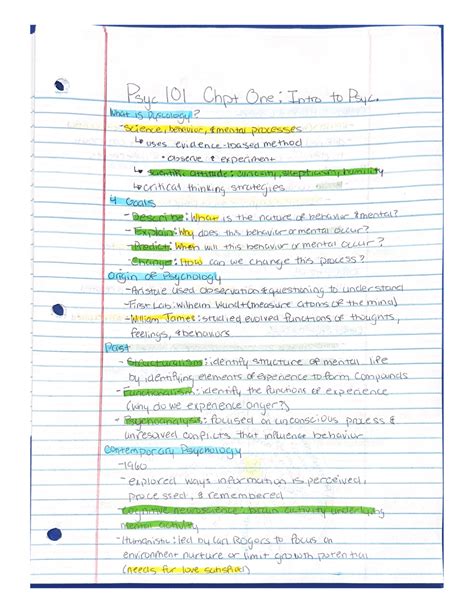 Psyc 101 Chpt One: Intro to Psyc.
What is Pyscology?
-Science, behavior, & mental processes
↳ uses evidence-based method
• observe & experiment
↳ scientific attitude: curiosity, skepticism, humility
↳ critical thinking strategies
4 Goals
-Describe: What is the nature of behavior & mental?
-Explain: Why does this behavior or mental occur?
-Predict: When will this behavior or mental occur?
-Change: How can we change this process?
Origin of Psychology
-Aristotle used observation & questioning to understand
-First Lab: Wilhelm Wundt (measure atoms of the mind)
-William James: studied evolved functions of thoughts,
feelings, & behaviors
Past
-Structuralism: identify structure of mental life
by identifying elements of experience to form compounds
-Functionalism: identify the functions of experience
(why do we experience anger?)
-Psychoanalyst: focused on unconscious process &
unresolved conflicts that influence behavior
Contemporary Psychology
-1960
-explored ways information is perceived,
processed, & remembered
-Cognitive neuroscience: brain activity underlying
mental activity
-Humanistic: led by Carl Rogers to focus on
environment nurture or limit growth potential
(needs for love satisfied)